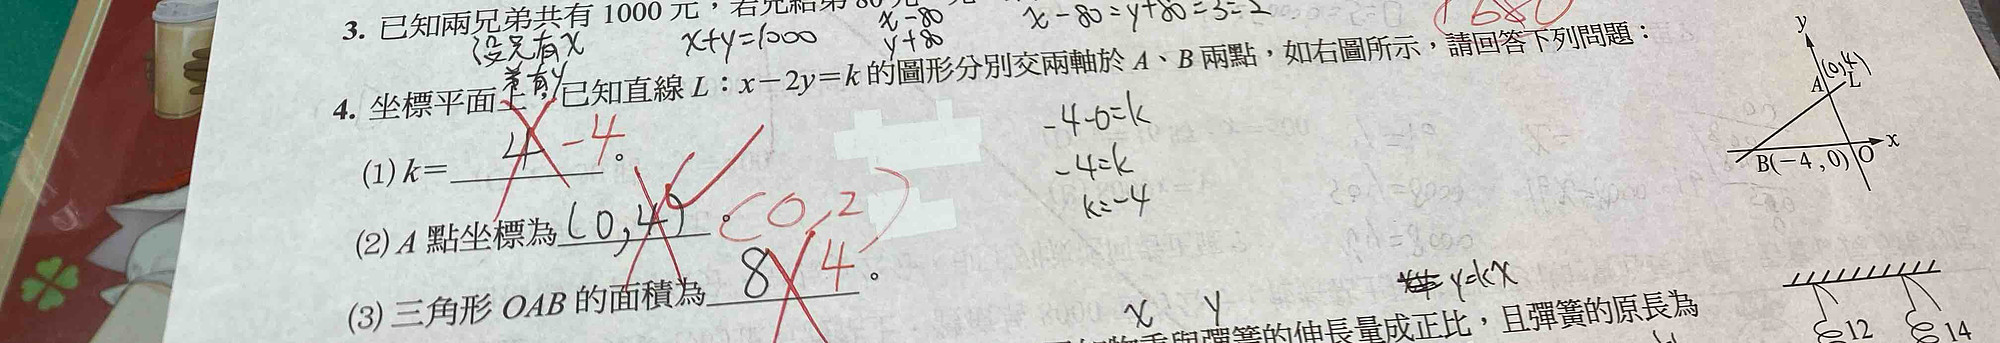 3. 已知兩兄弟共有 1000 元，若兄給弟 80 元
x-80
y+80
x-80=y+80=3=2
1680
設兄有x
弟有y
x+y=1000
4. 坐標平面上，已知直線 L：x-2y=k 的圖形分別交兩軸於 A、B 兩點，如右圖所示，請回答下列問題：
(1) k= 4 -4 。
-4-0=k
-4=k
k=-4
(2) A 點坐標為 (0,4) 。 (0,2)
(3) 三角形 OAB 的面積為 8 4 。
y
(0,4)
A
L
B(-4,0)
O
x
y=kx
x y
與彈簧的伸長量成正比，且彈簧的原長為
12
14